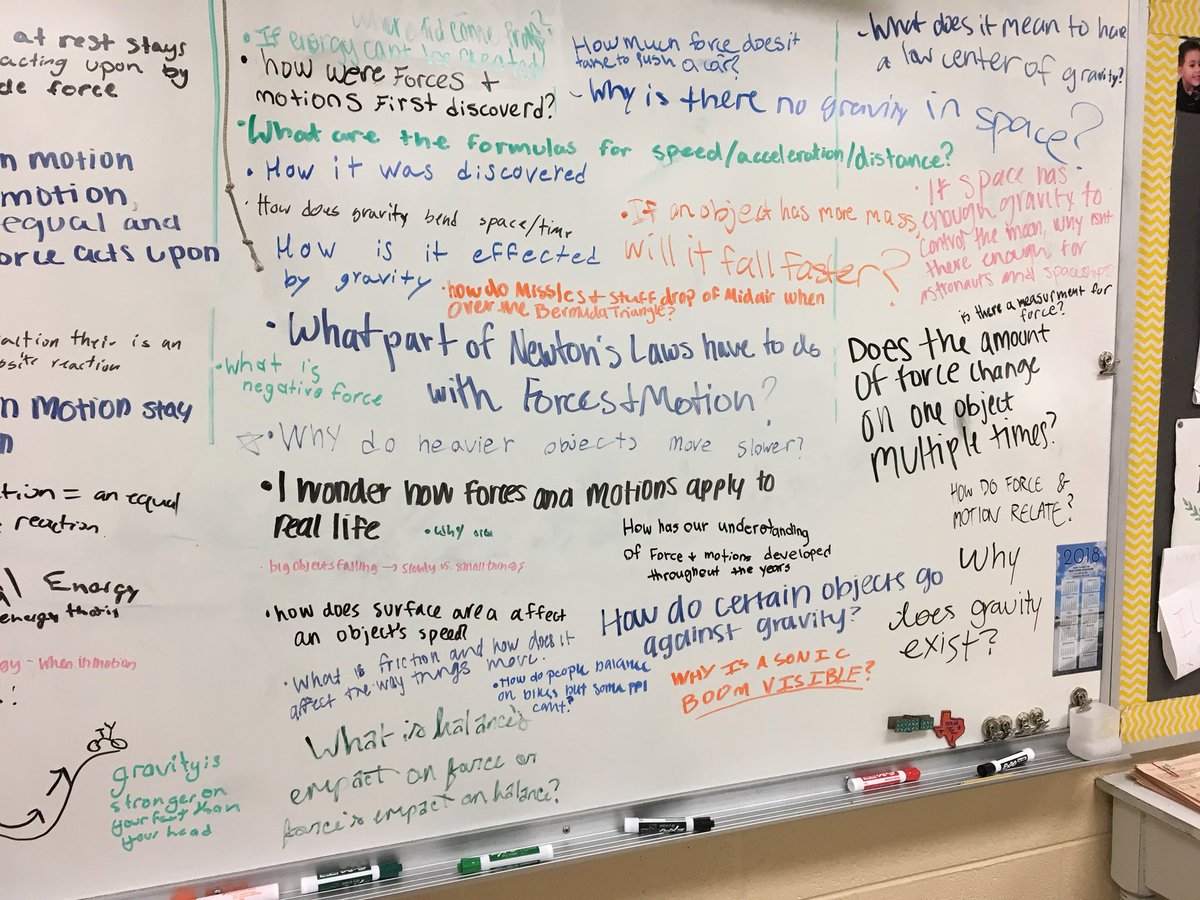 at rest stays
acting upon by
de force
n motion
motion,
equal and
orce acts upon
action their is an
posite reaction
n Motion stay
n
tion = an equal
reaction
al Energy
energy thats
gy - when in motion
gravity is
stronger on
your feet than
your head
Where did come from?
• If energy cant be created
• how were Forces +
motions First discoverd?
• What are the formulas for speed/acceleration/distance?
• How it was discovered
• How does gravity bend space/time
How is it effected
by gravity
How much force does it
take to push a car?
- Why is there no gravity in
space?
- What does it mean to have
a low center of gravity?
• If an object has more mass,
will it fall faster?
• If space has
enough gravity to
control the moon, why isnt
there enough for
astronauts and spaceships
• how do Missles + stuff drop of Midair when
over the Bermuda Triangle?
is there a measurment for
force?
• What part of Newton's Laws have to do
with Forces + Motion?
• What is
negative force
Does the amount
of force change
on one object
multiple times?
• Why do heavier objects move slower?
• I wonder how forces and motions apply to
real life
• why are
• big objects falling → slowly vs. small things
How has our understanding
of Force + motions developed
throughout the years
How do Force &
Motion relate?
Why
does gravity
exist?
2018
• how does surface area affect
an object's speed?
How do certain objects go
against gravity?
• What is friction and how does it
affect the way things move.
• How do people balance
on bikes but some ppl
cant?
WHY IS A SONIC
BOOM VISIBLE?
What is balance's
empact on force or
force's empact on balance?